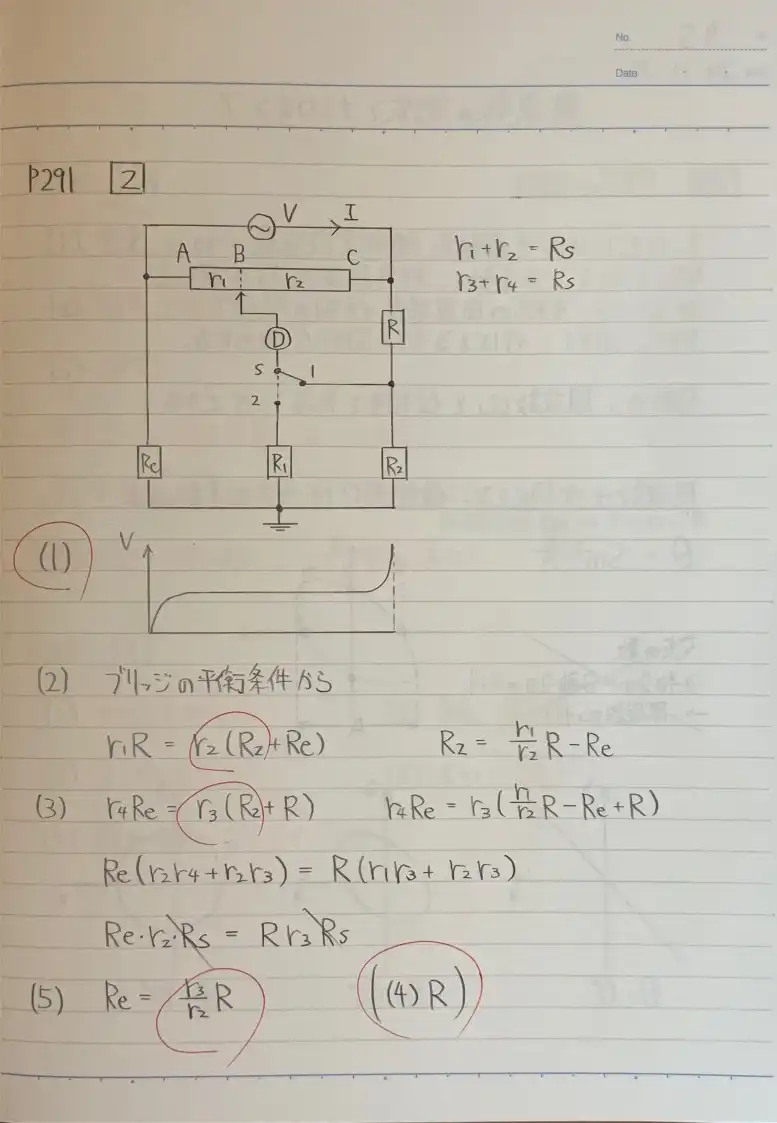 No.
Date
P291 [2]
V I
A B C
r₁ r₂
r₁+r₂ = Rs
r₃+r₄ = Rs
R
D
S 1
2
Re R₁ R₂
(1) V
(2) ブリッジの平衡条件から
r₁R = r₂(R₂+Re) R₂ = r₁/r₂ R − Re
(3) r₄Re = r₃(R₂+R) r₄Re = r₃(r₁/r₂ R − Re + R)
Re(r₂r₄+r₂r₃) = R(r₁r₃+r₂r₃)
Re·r₂·Rs = R r₃ Rs
(5) Re = r₃/r₂ R ((4) R)